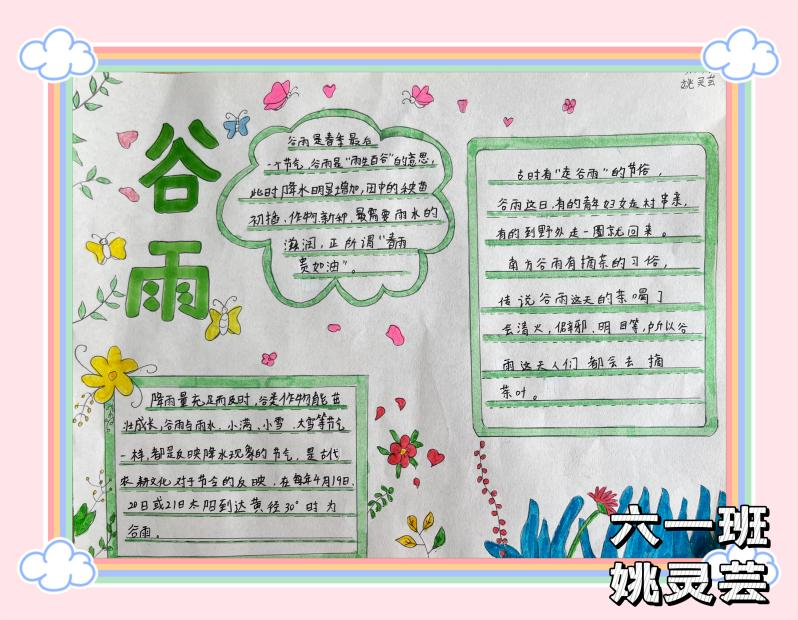 姚灵芸
谷雨
谷雨是春季最后
一个节气，谷雨是“雨生百谷”的意思，
此时降水明显增加，田中的秧苗
初插、作物新种，最需要雨水的
滋润，正所谓“春雨
贵如油”。
古时有“走谷雨”的节俗，
谷雨这日，有的青年妇女走村串亲，
有的到野外走一圈就回来。
南方谷雨有摘茶的习俗，
传说谷雨这天的茶喝了
会清火，僻邪、明目等，所以谷
雨这天人们都会去摘
茶叶。
降雨量充足而及时，谷类作物能茁
壮成长，谷雨与雨水、小满、小雪、大雪等节气
一样，都是反映降水现象的节气，是古代
农耕文化对于节令的反映，在每年4月19日、
20日或21日太阳到达黄径30°时为
谷雨。
六一班
姚灵芸